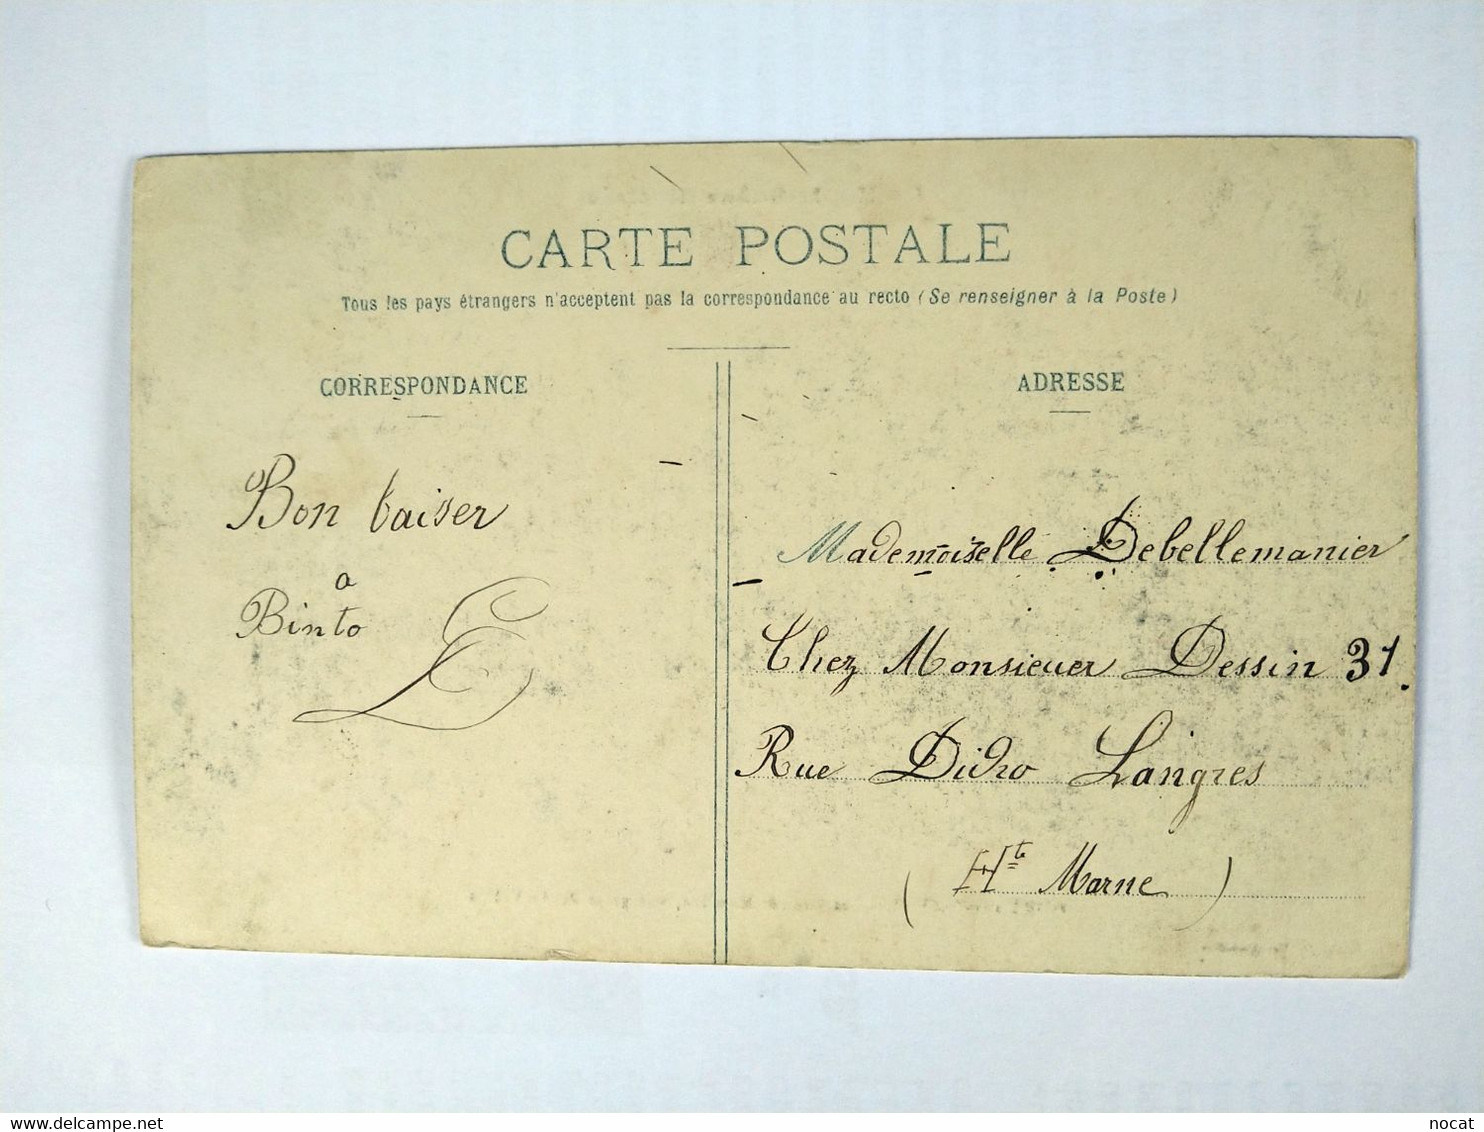 CARTE POSTALE
Tous les pays étrangers n'acceptent pas la correspondance au recto (Se renseigner à la Poste)
CORRESPONDANCE
Bon baiser
a
Binto
ADRESSE
Mademoiselle Debellemanier
Chez Monsieuer Dessin 31.
Rue Didro Langres
(Hte Marne)
www.delcampe.net
nocat